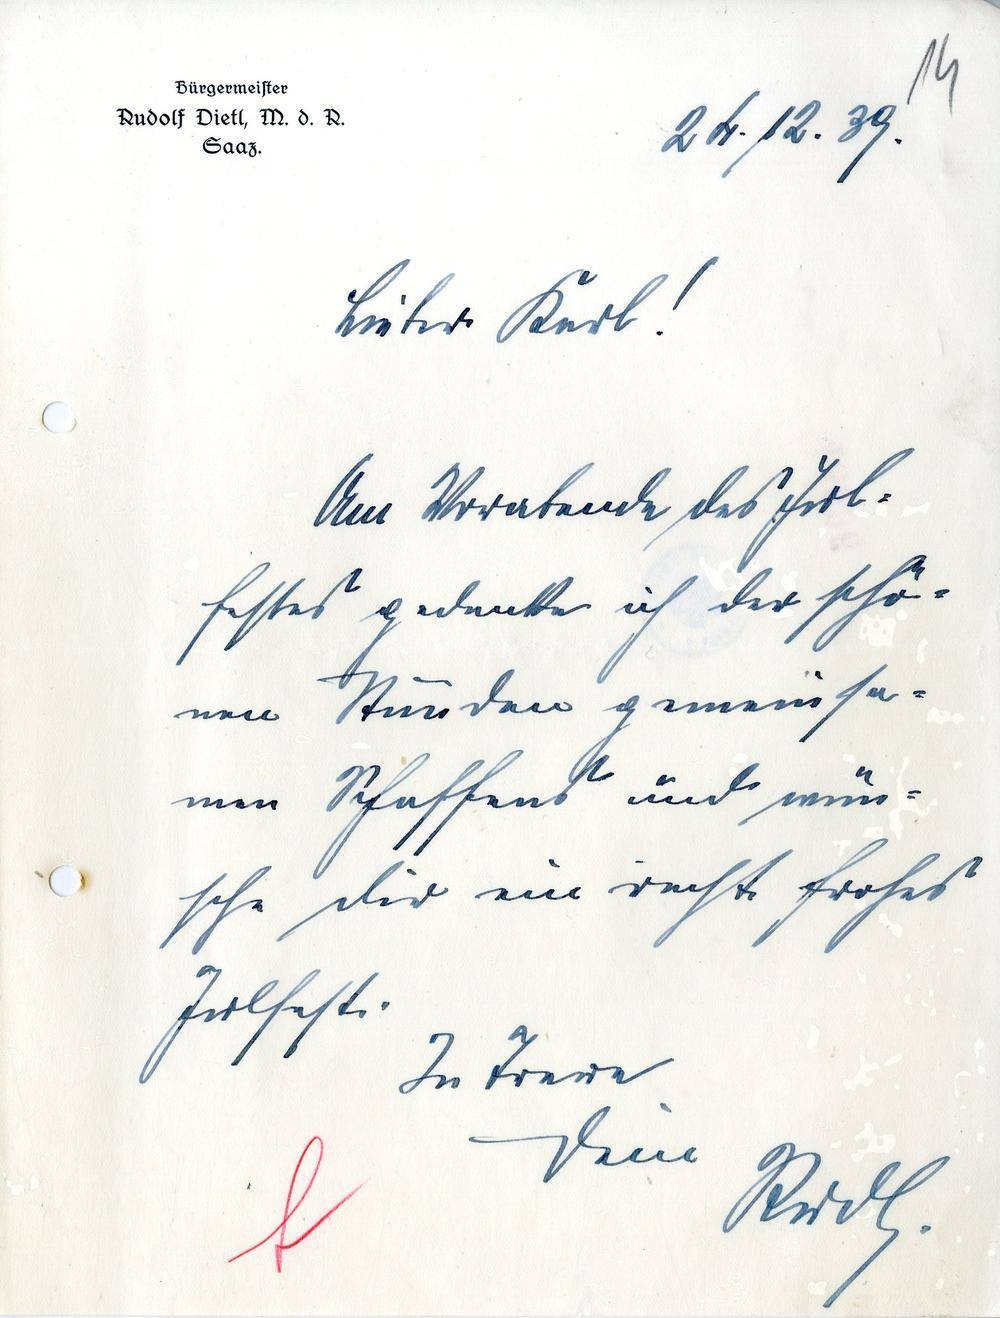 14
Bürgermeister
Rudolf Dietl, M. d. R.
Saaz.
24.12.39.
Lieber Karl!
Am Vorabende des Jul-
festes gedenke ich der schö-
nen Stunden gemeinsa-
men Schaffens und wün-
sche dir ein recht frohes
Julfest.
In Treue
Dein
Rudl.